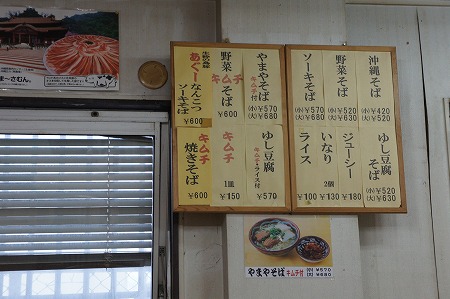 沖縄そば
(小)￥420
(大)￥520
野菜そば
(小)￥520
(大)￥630
ソーキそば
(小)￥570
(大)￥680
ゆし豆腐そば
(小)￥520
(大)￥630
ジューシー
￥180
いなり
2個
￥130
ライス
￥100
やまやそば
キムチ付
(小)￥570
(大)￥680
野菜キムチそば
￥600
あぐーなんこつソーキそば
￥600
ゆし豆腐
キムチ・ライス付
￥570
キムチ
1皿
￥150
キムチ焼きそば
￥600
やまやそば キムチ付
(小)￥570
(大)￥680
ま～さむん。